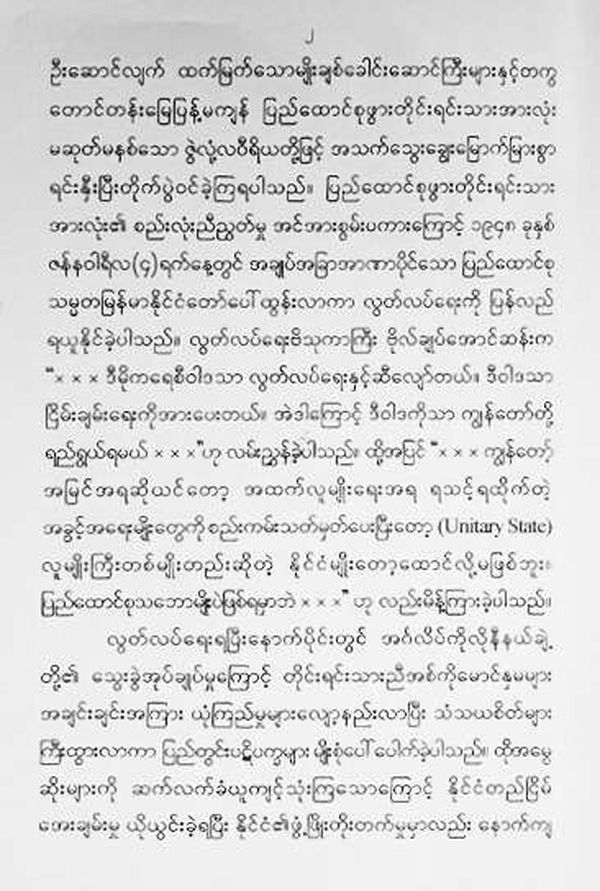 ၂
ဦးဆောင်လျက် ထက်မြက်သောမျိုးချစ်ခေါင်းဆောင်ကြီးများနှင့်တကွ
တောင်တန်းမြေပြန့်မကျန် ပြည်ထောင်စုဖွားတိုင်းရင်းသားအားလုံး
မဆုတ်မနစ်သော ဇွဲလုံ့လဝီရိယတို့ဖြင့် အသက်သွေးချွေးမြောက်မြားစွာ
ရင်းနှီးပြီးတိုက်ပွဲဝင်ခဲ့ကြရပါသည်။ ပြည်ထောင်စုဖွားတိုင်းရင်းသား
အားလုံး၏ စည်းလုံးညီညွတ်မှု အင်အားစွမ်းပကားကြောင့် ၁၉၄၈ ခုနှစ်
ဇန်နဝါရီလ(၄)ရက်နေ့တွင် အချုပ်အခြာအာဏာပိုင်သော ပြည်ထောင်စု
သမ္မတမြန်မာနိုင်ငံတော်ပေါ်ထွန်းလာကာ လွတ်လပ်ရေးကို ပြန်လည်
ရယူနိုင်ခဲ့ပါသည်။ လွတ်လပ်ရေးဗိသုကာကြီး ဗိုလ်ချုပ်အောင်ဆန်းက
“× × × ဒီမိုကရေစီဝါဒသာ လွတ်လပ်ရေးနှင့်ဆီလျော်တယ်။ ဒီဝါဒသာ
ငြိမ်းချမ်းရေးကိုအားပေးတယ်။ အဲဒါကြောင့် ဒီဝါဒကိုသာ ကျွန်တော်တို့
ရည်ရွယ်ရမယ် × × ×”ဟု လမ်းညွှန်ခဲ့ပါသည်။ ထို့အပြင် “× × × ကျွန်တော့်
အမြင်အရဆိုယင်တော့ အထက်လူမျိုးရေးအရ ရသင့်ရထိုက်တဲ့
အခွင့်အရေးမျိုးတွေကို စည်းကမ်းသတ်မှတ်ပေးပြီးတော့ (Unitary State)
လူမျိုးကြီးတစ်မျိုးတည်းဆိုတဲ့ နိုင်ငံမျိုးတော့ထောင်လို့မဖြစ်ဘူး။
ပြည်ထောင်စုသဘောမျိုးပဲဖြစ်ရမှာဘဲ × × ×” ဟု လည်းမိန့်ကြားခဲ့ပါသည်။
လွတ်လပ်ရေးရပြီးနောက်ပိုင်းတွင် အင်္ဂလိပ်ကိုလိုနီနယ်ချဲ့
တို့၏ သွေးခွဲအုပ်ချုပ်မှုကြောင့် တိုင်းရင်းသားညီအစ်ကိုမောင်နှမများ
အချင်းချင်းအကြား ယုံကြည်မှုများလျော့နည်းလာပြီး သံသယစိတ်များ
ကြီးထွားလာကာ ပြည်တွင်းပဋိပက္ခများ မျိုးစုံပေါ်ပေါက်ခဲ့ပါသည်။ ထိုအမွေ
ဆိုးများကို ဆက်လက်ခံယူကျင့်သုံးကြသောကြောင့် နိုင်ငံတည်ငြိမ်
အေးချမ်းမှု ယိုယွင်းခဲ့ရပြီး နိုင်ငံ၏ဖွံ့ဖြိုးတိုးတက်မှုမှာလည်း နောက်ကျ